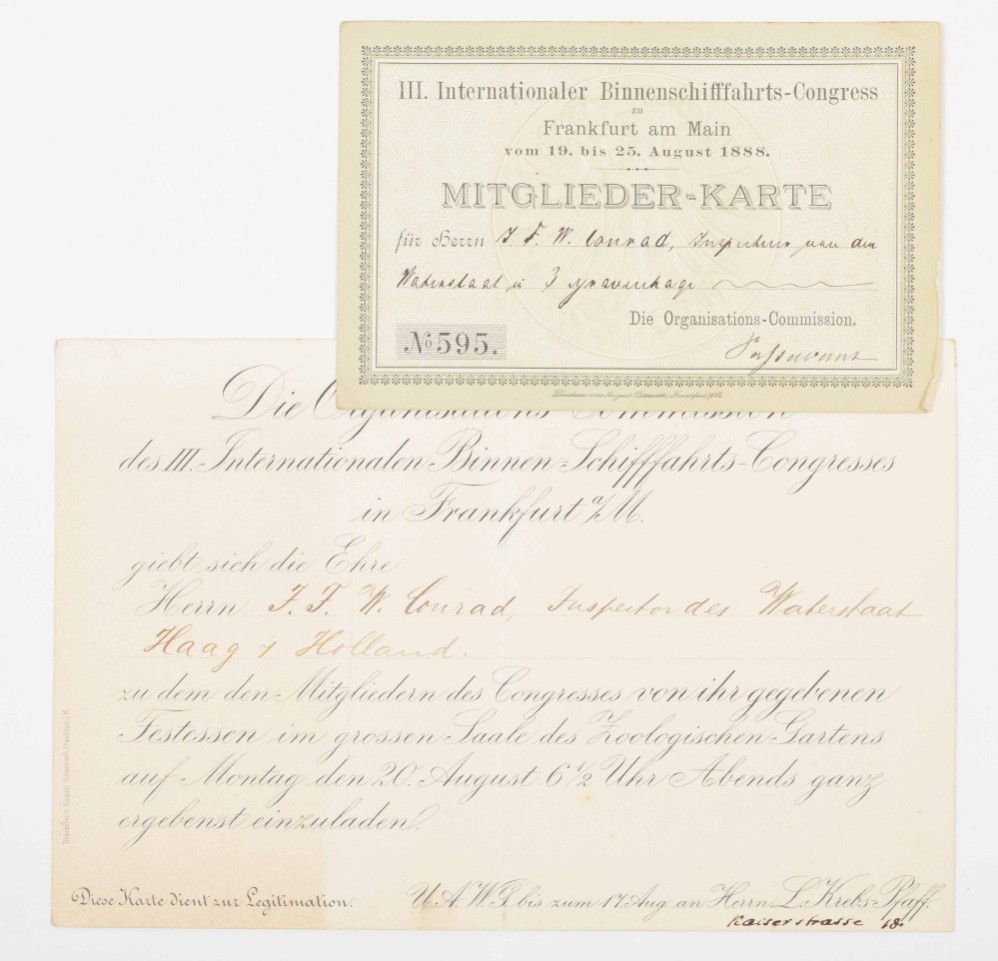 III. Internationaler Binnenschifffahrts-Congress
zu
Frankfurt am Main
vom 19. bis 25. August 1888.
MITGLIEDER-KARTE
für Herrn J. F. W. Conrad, Inspecteur van den
Waterstaat in 's Gravenhage
Die Organisations-Commission.
No 595.
Die Organisations Commission
des III. Internationalen Binnen-Schifffahrts-Congresses
in Frankfurt a/M.
giebt sich die Ehre
Herrn J. F. W. Conrad, Inspector des Waterstaat
Haag / Holland.
zu dem den Mitgliedern des Congresses von ihr gegebenen
Festessen im grossen Saale des Zoologischen Gartens
auf Montag den 20. August 6 1/2 Uhr Abends ganz
ergebenst einzuladen.
Diese Karte dient zur Legitimation.
U. A. W. G. bis zum 17 Aug. an Herrn L. Krebs-Pfaff.
Kaiserstrasse 18.